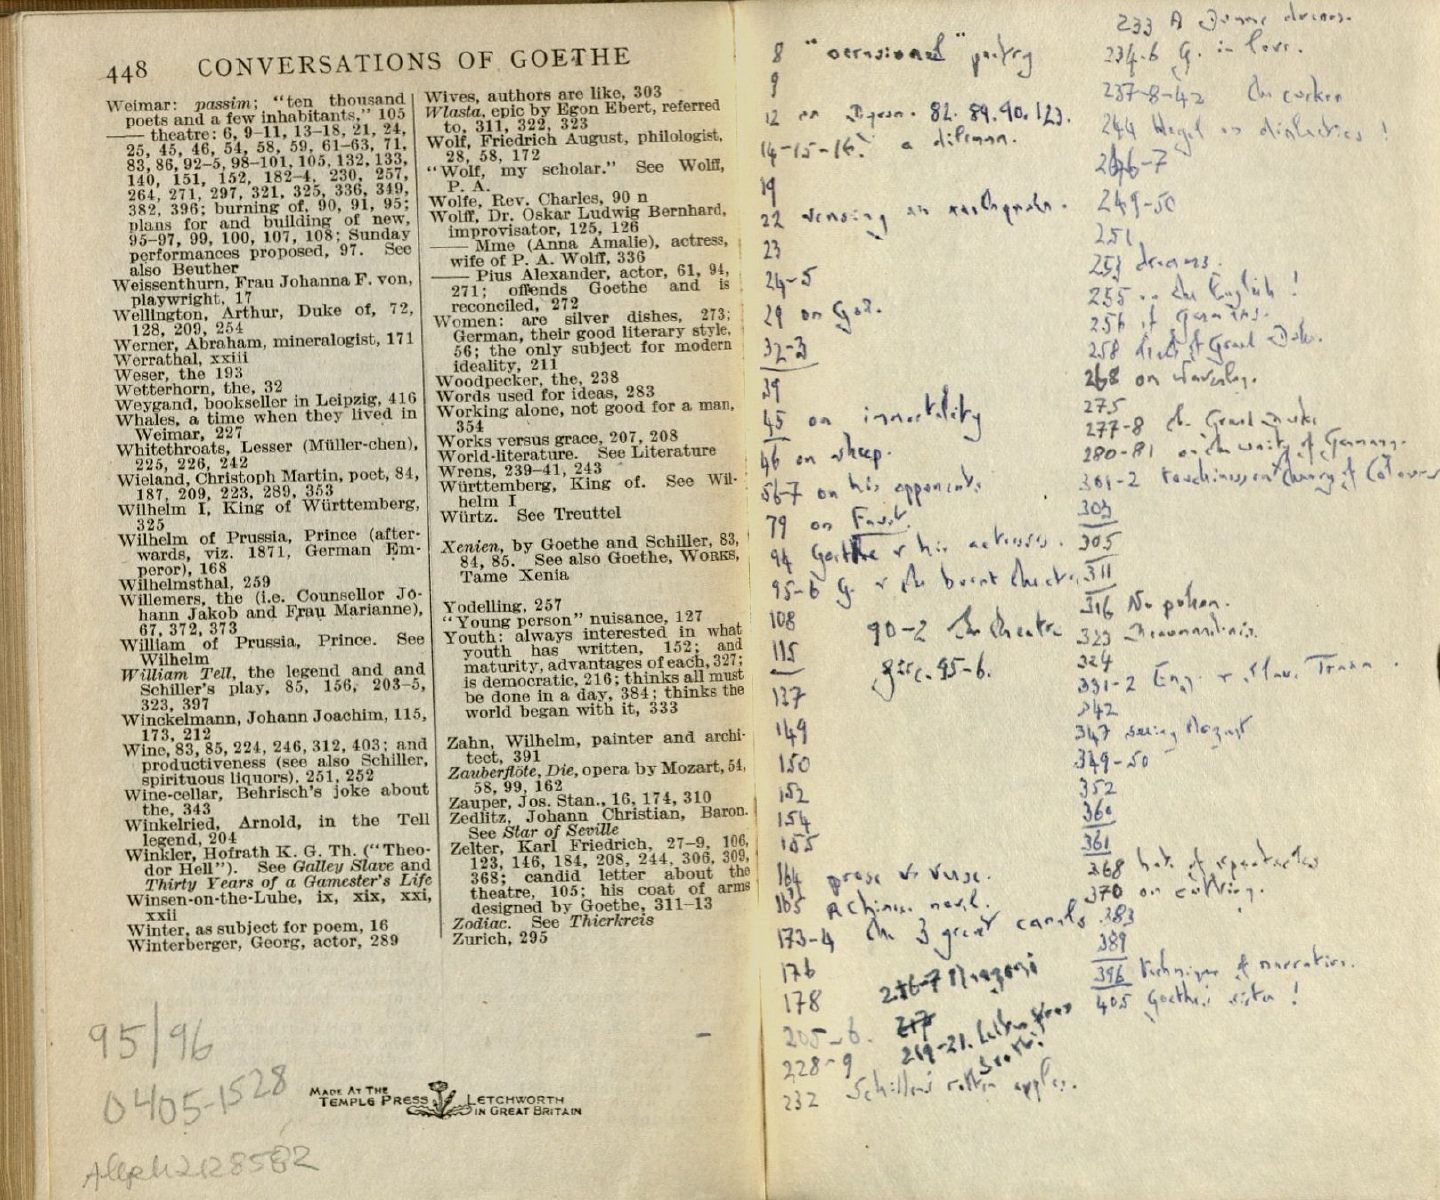 448 CONVERSATIONS OF GOETHE
Weimar: passim; "ten thousand
poets and a few inhabitants," 105
—— theatre: 6, 9–11, 13–18, 21, 24,
25, 45, 46, 54, 58, 59, 61–63, 71,
83, 86, 92–5, 98–101, 105, 132, 133,
140, 151, 152, 182–4, 230, 257,
264, 271, 297, 321, 325, 336, 349,
382, 396; burning of, 90, 91, 95;
plans for and building of new,
95–97, 99, 100, 107, 108; Sunday
performances proposed, 97. See
also Beuther
Weissenthurn, Frau Johanna F. von,
playwright, 17
Wellington, Arthur, Duke of, 72,
128, 209, 254
Werner, Abraham, mineralogist, 171
Werrathal, xxiii
Weser, the 193
Wetterhorn, the, 32
Weygand, bookseller in Leipzig, 416
Whales, a time when they lived in
Weimar, 227
Whitethroats, Lesser (Müller-chen),
225, 226, 242
Wieland, Christoph Martin, poet, 84,
187, 209, 223, 289, 353
Wilhelm I, King of Württemberg,
325
Wilhelm of Prussia, Prince (after-
wards, viz. 1871, German Em-
peror), 168
Wilhelmsthal, 259
Willemers, the (i.e. Counsellor Jo-
hann Jakob and Frau Marianne),
67, 372, 373
William of Prussia, Prince. See
Wilhelm
William Tell, the legend and and
Schiller's play, 85, 156, 203–5,
323, 397
Winckelmann, Johann Joachim, 115,
173, 212
Wine, 83, 85, 224, 246, 312, 403; and
productiveness (see also Schiller,
spirituous liquors), 251, 252
Wine-cellar, Behrisch's joke about
the, 343
Winkelried, Arnold, in the Tell
legend, 204
Winkler, Hofrath K. G. Th. ("Theo-
dor Hell"). See Galley Slave and
Thirty Years of a Gamester's Life
Winsen-on-the-Luhe, ix, xix, xxi,
xxii
Winter, as subject for poem, 16
Winterberger, Georg, actor, 289
Wives, authors are like, 303
Wlasta, epic by Egon Ebert, referred
to, 311, 322, 323
Wolf, Friedrich August, philologist,
28, 58, 172
"Wolf, my scholar." See Wolff,
P. A.
Wolfe, Rev. Charles, 90 n
Wolff, Dr. Oskar Ludwig Bernhard,
improvisator, 125, 126
—— Mme (Anna Amalie), actress,
wife of P. A. Wolff, 336
—— Pius Alexander, actor, 61, 94,
271; offends Goethe and is
reconciled, 272
Women: are silver dishes, 273;
German, their good literary style,
56; the only subject for modern
ideality, 211
Woodpecker, the, 238
Words used for ideas, 283
Working alone, not good for a man,
354
Works versus grace, 207, 208
World-literature. See Literature
Wrens, 239–41, 243
Württemberg, King of. See Wil-
helm I
Würtz. See Treuttel
Xenien, by Goethe and Schiller, 83,
84, 85. See also Goethe, WORKS,
Tame Xenia
Yodelling, 257
"Young person" nuisance, 127
Youth: always interested in what
youth has written, 152; and
maturity, advantages of each, 327;
is democratic, 216; thinks all must
be done in a day, 384; thinks the
world began with it, 333
Zahn, Wilhelm, painter and archi-
tect, 391
Zauberflöte, Die, opera by Mozart, 54,
58, 99, 162
Zauper, Jos. Stan., 16, 174, 310
Zedlitz, Johann Christian, Baron.
See Star of Seville
Zelter, Karl Friedrich, 27–9, 106,
123, 146, 184, 208, 244, 306, 309,
368; candid letter about the
theatre, 105; his coat of arms
designed by Goethe, 311–13
Zodiac. See Thierkreis
Zurich, 295
95/96
0405-1528
MADE AT THE
TEMPLE PRESS
LETCHWORTH
IN GREAT BRITAIN
8 "occasional" poetry
9
12 on Byron. 82. 89. 90. 123.
14-15-16. a dilemma.
19
22 sensing an earthquake.
23
24-5
29 on God.
32-3
39
45 on immortality
46 on sheep.
56-7 on his opponents
79 on Faust.
94 Goethe & his actresses.
95-6 G. & the burnt theatre
108
90-2 the theatre
115
95-6.
137
149
150
152
154
155
164 prose vs verse.
165 A Chinese novel.
173-4 the 3 great canals
176
216-7 Manzoni
178
217
205-6.
219-21.
228-9
232 Schiller's rotten apples.
233 A dream.
234-6 G. in love.
237-8-42 the cuckoo
244 Hegel on dialectics!
246-7
249-50
251
253 dreams.
255 on the English!
256 of Germans.
258 death of Grand Duke.
268 on Waverley.
275
277-8 the Grand Duke
280-81 on the unity of Germany.
301-2 touchiness on theory of Colours
303
305
311
316 No poker.
323
324
331-2 Eng. & Slave Trade.
342
347 seeing Mozart
349-50
352
360
361
368 hate of spectacles
370 on
383
389
396 technique of narrative.
405 Goethe's sister!